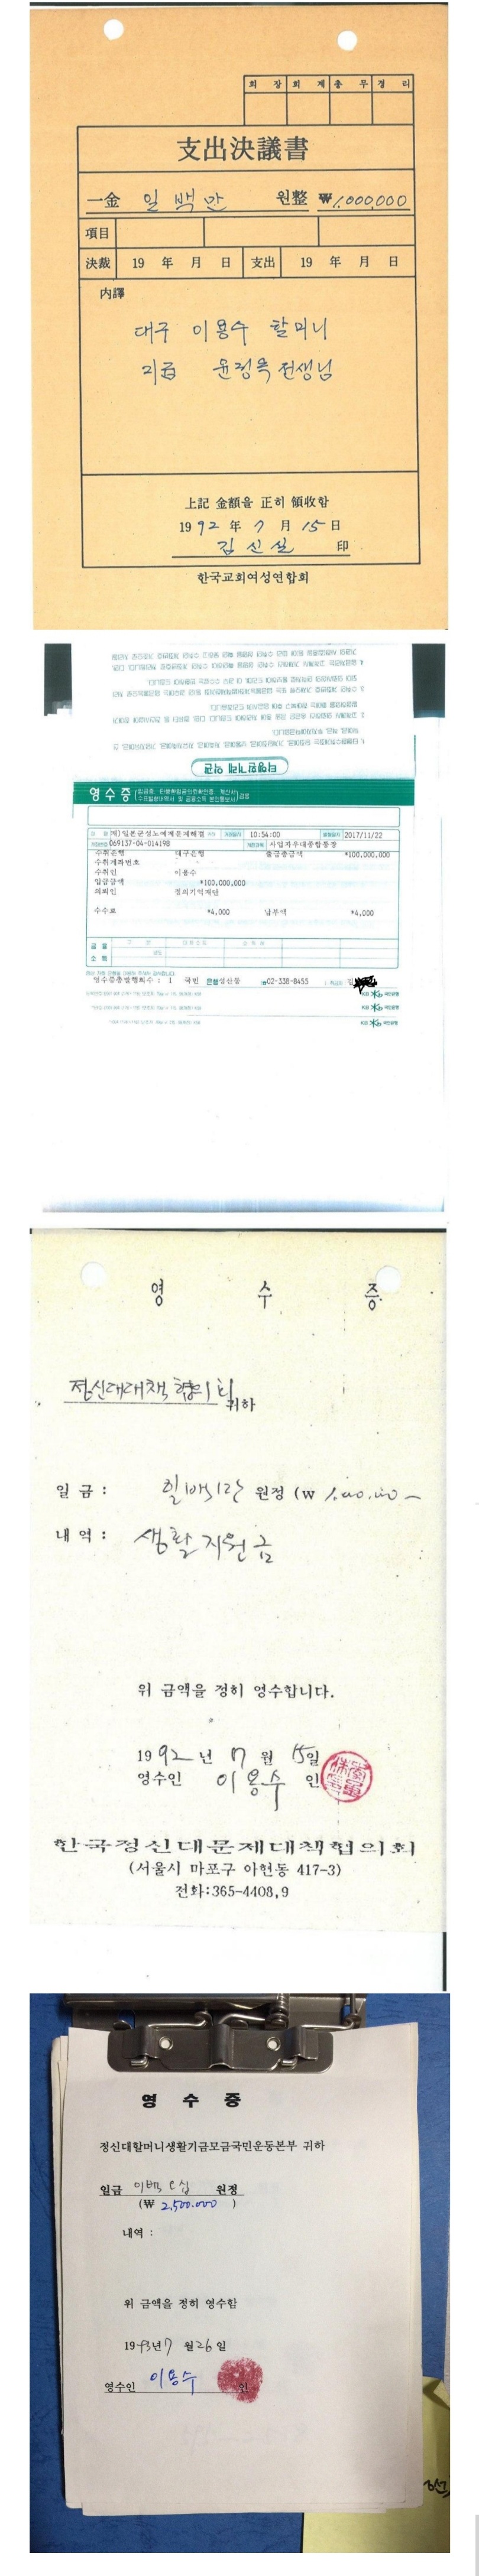 회 장 회 계 총 무 경 리
支出決議書
一金 일백만 원整 ₩1,000,000
項目
決裁 19 年 月 日 支出 19 年 月 日
内譯
대구 이용수 할머니
지급 윤정옥 선생님
上記 金額을 正히 領收함
1992 年 7 月 15 日
김신실 印
한국교회여성연합회
타행환거래 약관
영수증
10:54:00
2017/11/22
069137-04-014198
사업자우대종합통장
수취은행 대구은행 출금총금액 *100,000,000
수취계좌번호
수취인 이용수
입금금액 *100,000,000
의뢰인 정의기억재단
수수료 *4,000 납부액 *4,000
영수증총발행회수 : 1 국민 은행성산동 ☎02-338-8455
영 수 증
정신대대책협의회 귀하
일금 : 일백만 원정 (₩ 1,000,000 -
내역 : 생활지원금
위 금액을 정히 영수합니다.
1992 년 7 월 15일
영수인 이용수 인
한국정신대문제대책협의회
(서울시 마포구 아현동 417-3)
전화:365-4408,9
영 수 증
정신대할머니생활기금모금국민운동본부 귀하
일금 이백오십 원정
(₩ 2,500,000 )
내역 :
위 금액을 정히 영수함
1993년 7 월 26 일
영수인 이용수 인